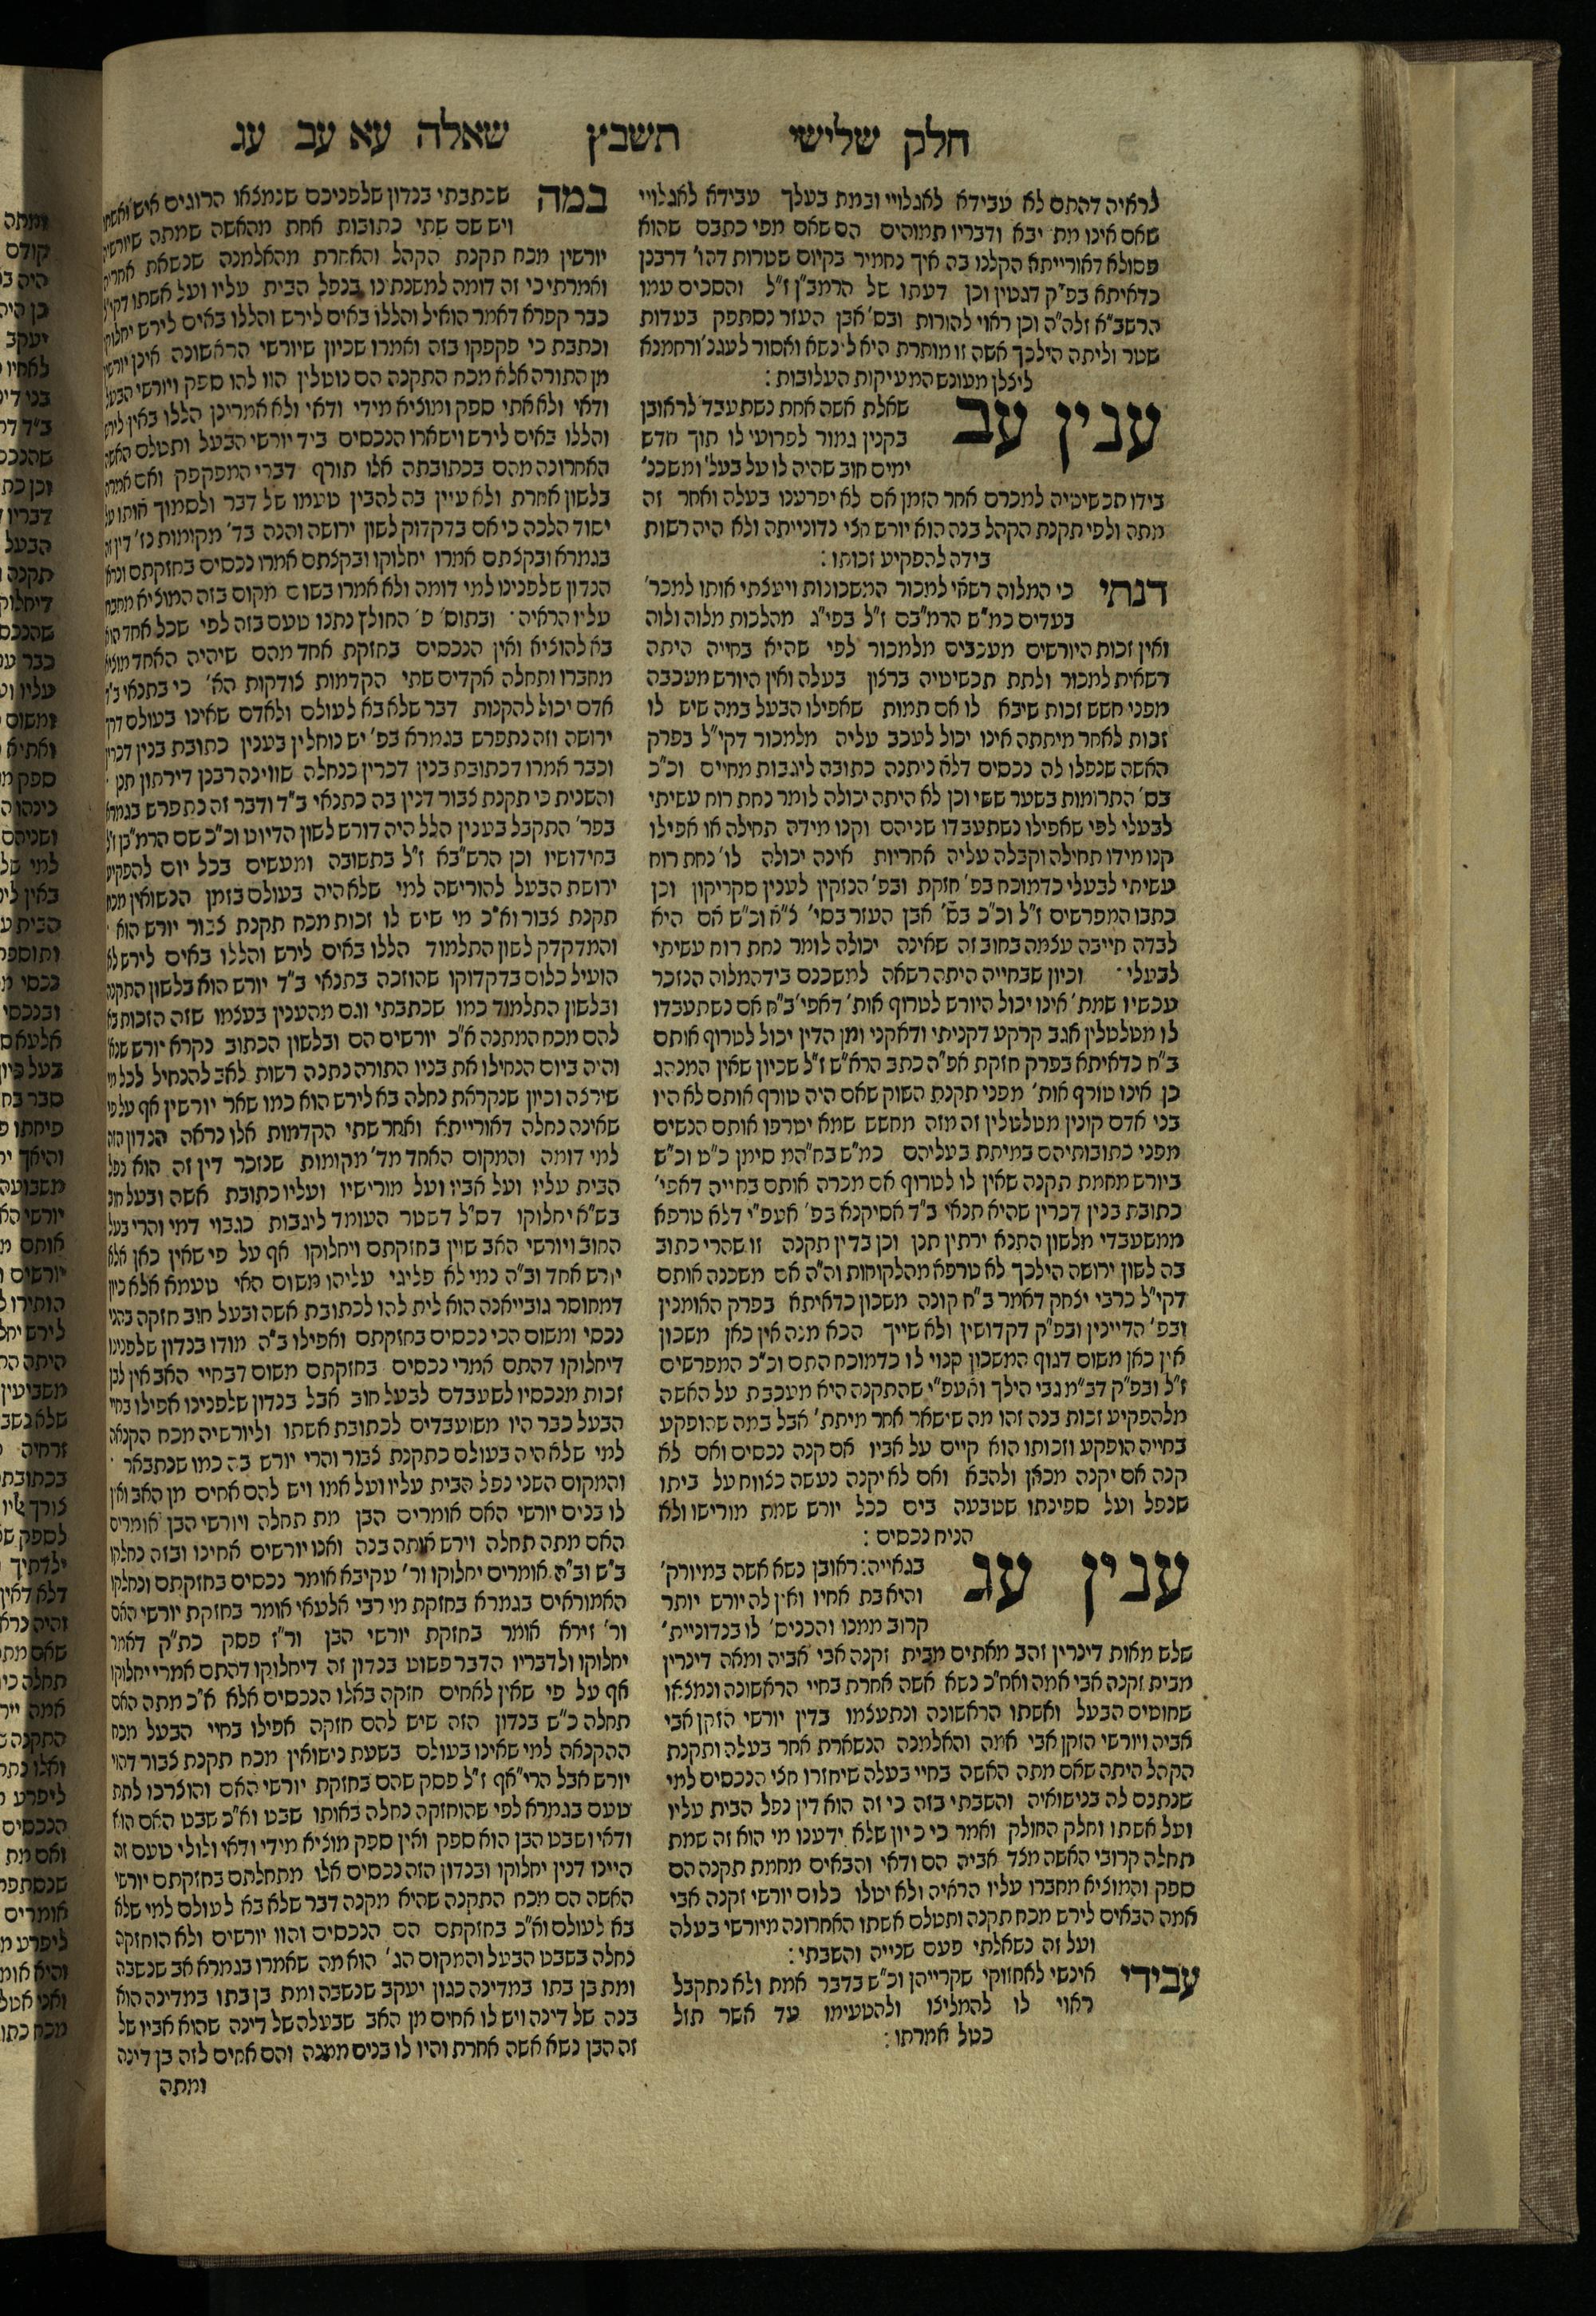 חלק שלישי תשבץ שאלה עא עב עג
לראיה דהתם לא עבידא לאגלויי ובמת בעלך עבידא לאגלויי
שאם אינו מת יבא ודבריו תמוהים הם שאם מפי כתבם שהוא
פסולא דאורייתא הקלנו בה איך נחמיר בקיום שטרות דהו' דרבנן
כדאיתא בפ"ק דגטין וכן דעתו של הרמב"ן ז"ל והסכים עמו
הרשב"א זלה"ה וכן ראוי להורות ובס' אבן העזר נסתפק בעדות
שטר וליתה הילכך אשה זו מותרת היא לינשא ואסור לעגנ' ורחמנא
ליצלן מעונש המעיקות העלובות :
ענין עב
שאלת אשה אחת נשתעבד לראובן
בקנין גמור לפרועי לו תוך חדש
ימים חוב שהיה לו על בעל' ומשכנ'
בידו תכשיטיה למכרם אחר הזמן אם לא יפרענו בעלה ואחר זה
מתה ולפי תקנת הקהל בנה הוא יורש חצי נדונייתה ולא היה רשות
בידה להפקיע זכותו :
דנתי כי המלוה רשאי למכור המשכונות ויעצתי אותו למכר'
בעדים כמ"ש הרמ"בם ז"ל בפי"ג מהלכות מלוה ולוה
ואין זכות היורשים מעכבים מלמכור לפי שהיא בחייה היתה
רשאית למכור ולתת תכשיטיה ברצון בעלה ואין היורש מעכבה
מפני חשש זכות שיבא לו אם תמות שאפילו הבעל במה שיש לו
זכות לאחר מיתתה אינו יכול לעכב עליה מלמכור דקי"ל בפרק
האשה שנפלו לה נכסים דלא ניתנה כתובה ליגבות מחיים וכ"כ
בס' התרומות בשער ששי וכן לא היתה יכולה לומר נחת רוח עשיתי
לבעלי לפי שאפילו נשתעבדו שניהם וקנו מידה תחילה או אפילו
קנו מידו תחילה וקבלה עליה אחריות אינה יכולה לו' נחת רוח
עשיתי לבעלי כדמוכח בפ' חזקת ובפ' הנזקין לענין סקריקון וכן
כתבו המפרשים ז"ל וכ"כ בס' אבן העזר בסי' צ"א וכ"ש אם היא
לבדה חייבה עצמה בחוב זה שאינה יכולה לומר נחת רוח עשיתי
לבעלי · וכיון שבחייה היתה רשאה למשכנם ביד המלוה הנזכר
עכשיו שמת' אינו יכול היורש לטרוף אות' דאפי' ב"ח אם נשתעבדו
לו מטלטלין אגב קרקע דקניתי ודאקני ומן הדין יכול לטרוף אותם
ב"ח כדאיתא בפרק חזקת אפ"ה כתב הרא"ש ז"ל שכיון שאין המנהג
כן אינו טורף אות' מפני תקנת השוק שאם היה טורף אותם לא היו
בני אדם קונין מטלטלין זה מזה מחשש שמא יטרפו אותם הנשים
מפני כתובותיהם במיתת בעליהם כמ"ש בח"המ סימן כ"ט וכ"ש
ביורש מחמת תקנה שאין לו לטרוף אם מכרה אותם בחייה דאפי'
כתובת בנין דכרין שהיא תנאי ב"ד אסיקנא בפ' אעפ"י דלא טרפא
ממשעבדי מלשון התנא ירתין תנן וכן בדין תקנה זו שהרי כתוב
בה לשון ירושה הילכך לא טרפא מהלקוחות וה"ה אם משכנה אותם
דקי"ל כרבי יצחק דאמר ב"ח קונה משכון כדאיתא בפרק האומנין
ובפ' הדיינין ובפ"ק דקדושין ולא שייך הכא מנה אין כאן משכון
אין כאן משום דגוף המשכון קנוי לו כדמוכח התם וכ"כ המפרשים
ז"ל ובפ"ק דב"מ גבי הילך ואעפ"י שהתקנה היא מעכבת על האשה
מלהפקיע זכות בנה זהו מה שישאר אחר מיתת' אבל במה שהופקע
בחייה הופקע וזכותו הוא קיים על אביו אם קנה נכסים ואם לא
קנה אם יקנה מכאן ולהבא ואם לא יקנה נעשה כצווח על ביתו
שנפל ועל ספינתו שטבעה בים ככל יורש שמת מורישו ולא
הניח נכסים :
ענין עג
בגאייה: ראובן נשא אשה במיורק'
והיא בת אחיו ואין לה יורש יותר
קרוב ממנו והכניס' לו בנדוניית'
שלש מאות דינרין זהב מאתים מבית זקנה אבי אביה ומאה דינרין
מבית זקנה אבי אמה ואח"כ נשא אשה אחרת בחיי הראשונה ונמצאו
שחוטים הבעל ואשתו הראשונה ונתעצמו בדין יורשי הזקן אבי
אביה ויורשי הזקן אבי אמה והאלמנה הנשארת אחר בעלה ותקנת
הקהל היתה שאם מתה האשה בחיי בעלה שיחזרו חצי הנכסים למי
שנתנם לה בנישואיה והשבתי בזה כי זה הוא דין נפל הבית עליו
ועל אשתו וחלק החולק ואמר כי כיון שלא ידענו מי הוא זה שמת
תחלה קרובי האשה מצד אביה הם ודאי והבאים מחמת תקנה הם
ספק והמוציא מחברו עליו הראיה ולא יטלו כלום יורשי זקנה אבי
אמה הבאים לירש מכח תקנה ותטלם אשתו האחרונה מיורשי בעלה
ועל זה נשאלתי פעם שנייה והשבתי:
עבידי אינשי לאחזוקי שקרייהן וכ"ש בדבר אמת ולא נתקבל
ראוי לו להמליצו ולהטעימו עד אשר תזל
כטל אמרתו:
במה שכתבתי בנדון שלפניכם שנמצאו הרוגים איש ואשתו
ויש שם שתי כתובות אחת מהאשה שמתה שיורשיה
יורשין מכח תקנת הקהל והאחרת מהאלמנה שנשאת אחריה
ואמרתי כי זה דומה למשנתינו בנפל הבית עליו ועל אשתו דקי"ל
כבר קפרא דאמר הואיל והללו באים לירש והללו באים לירש יחלוקו
וכתבת כי פקפקו בזה ואמרו שכיון שיורשי הראשונה אינן יורשין
מן התורה אלא מכח התקנה הם נוטלין הוו להו ספק ויורשי הבעל
ודאי ולא אתי ספק ומוציא מידי ודאי ולא אמרינן הללו באין לירש
והללו באים לירש וישארו הנכסים ביד יורשי הבעל ותטלם האשה
האחרונה מהם בכתובתה אלו תורף דברי המפקפק ואם אמרה
בלשון אחרת ולא עיין בה להבין טעמו של דבר ולסמוך אותו על
יסוד הלכה כי אם בדקדוק לשון ירושה והנה בד' מקומות נז' דין זה
בגמרא ובקצתם אמרו יחלוקו ובקצתם אמרו נכסים בחזקתם ונראה
הנדון שלפנינו למי דומה ולא אמרו בשום מקום בזה המוציא מחברו
עליו הראיה · ובתוס' פ' החולץ נתנו טעם בזה לפי שכל אחד הוא
בא להוציא ואין הנכסים בחזקת אחד מהם שיהיה האחד מוציא
מחברו ותחלה אקדים שתי הקדמות צודקות הא' כי בתנאי ב"ד
אדם יכול להקנות דבר שלא בא לעולם ולאדם שאינו בעולם דרך
ירושה וזה נתפרש בגמרא בפ' יש נוחלין בענין כתובת בנין דכרין
וכבר אמרו דכתובת בנין דכרין כנחלה שווינהו רבנן דירתון תנן ·
והשנית כי תקנת צבור דנין בה כתנאי ב"ד ודבר זה נתפרש בגמרא
בפר' התקבל בענין הלל היה דורש לשון הדיוט וכ"כ שם הרמ"בן ז"ל
בחידושיו וכן הרש"בא ז"ל בתשובה ומעשים בכל יום להפקיע
ירושת הבעל להורישה למי שלא היה בעולם בזמן הנשואין מכח
תקנת צבור וא"כ מי שיש לו זכות מכח תקנת צבור יורש הוא ·
והמדקדק לשון התלמוד הללו באים לירש והללו באים לירש לא
הועיל כלום בדקדוקו שהזוכה בתנאי ב"ד יורש הוא בלשון התקנה
ובלשון התלמוד כמו שכתבתי וגם מהענין בעצמו שזה הזכות בא
להם מכח המתנה א"כ יורשים הם ובלשון הכתוב נקרא יורש שנא'
והיה ביום הנחילו את בניו התורה נתנה רשות לאב להנחיל לכל מי
שירצה וכיון שנקראת נחלה בא לירש הוא כמו שאר יורשין אף על פי
שאינה נחלה דאורייתא ואחר שתי הקדמות אלו נראה הנדון הזה
למי דומה והמקום האחד מד' מקומות שנזכר דין זה הוא נפל
הבית עליו ועל אביו ועל מורישיו ועליו כתובת אשה ובעל חוב
בש"א יחלוקו דס"ל דשטר העומד ליגבות כגבוי דמי והרי בעל
החוב ויורשי האב שוין בחזקתם ויחלוקו אף על פי שאין כאן אלא
יורש אחד וב"ה נמי לא פליגי עליהו משום האי טעמא אלא כיון
דמחוסר גובייאנה הוא לית להו לכתובת אשה ובעל חוב חזקה בהני
נכסי ומשום הכי נכסים בחזקתם ואפילו ב"ה מודו בנדון שלפנינו
דיחלוקו דהתם אמרי נכסים בחזקתם משום דבחיי האב אין לבן
זכות מנכסיו לשעבדם לבעל חוב אבל בנדון שלפנינו אפילו בחיי
הבעל כבר היו משועבדים לכתובת אשתו וליורשיה מכח הקנאה
למי שלא היה בעולם כתקנת צבור והרי יורש בה כמו שנתבאר ·
והמקום השני נפל הבית עליו ועל אמו ויש להם אחים מן האב ואין
לו בנים יורשי האם אומרים הבן מת תחלה ויורשי הבן אומרים
האם מתה תחלה וירש אותה בנה ואנו יורשים אחינו ובזה נחלקו
ב"ש וב"ה אומרים יחלוקו ור' עקיבא אומר נכסים בחזקתם ונחלקו
האמוראים בגמרא בחזקת מי רבי אלעאי אומר בחזקת יורשי האם
ור' זירא אומר בחזקת יורשי הבן ור"ז פסק כת"ק דאמר
יחלוקו ולדבריו הדבר פשוט בנדון זה דיחלוקו דהתם אמרי יחלוקו
אף על פי שאין לאחים חזקה באלו הנכסים אלא א"כ מתה האם
תחלה כ"ש בנדון הזה שיש להם חזקה אפילו בחיי הבעל מכח
ההקנאה למי שאינו בעולם בשעת נישואין מכח תקנת צבור דהוי
יורש אבל הרי"אף ז"ל פסק שהם בחזקת יורשי האם והוצרכו לתת
טעם בגמרא לפי שהוחזקה נחלה באותו שבט וא"כ שבט האם הוא
ודאי ושבט הבן הוא ספק ואין ספק מוציא מידי ודאי ולולי טעם זה
היינו דנין יחלוקו ובנדון הזה נכסים אלו מתחלתם בחזקתם יורשי
האשה הם מכח התקנה שהיא מקנה דבר שלא בא לעולם למי שלא
בא לעולם וא"כ בחזקתם הם הנכסים והוו יורשים ולא הוחזקה
נחלה בשבט הבעל והמקום הג' הוא מה שאמרו בגמרא אב שנשבה
ומת בן בתו במדינה כגון יעקב שנשבה ומת בן בתו במדינה הוא
בנה של דינה ויש לו אחים מן האב שבעלה של דינה שהוא אביו של
זה הבן נשא אשה אחרת והיו לו בנים ממנה והם אחים לזה בן דינה
ומתה